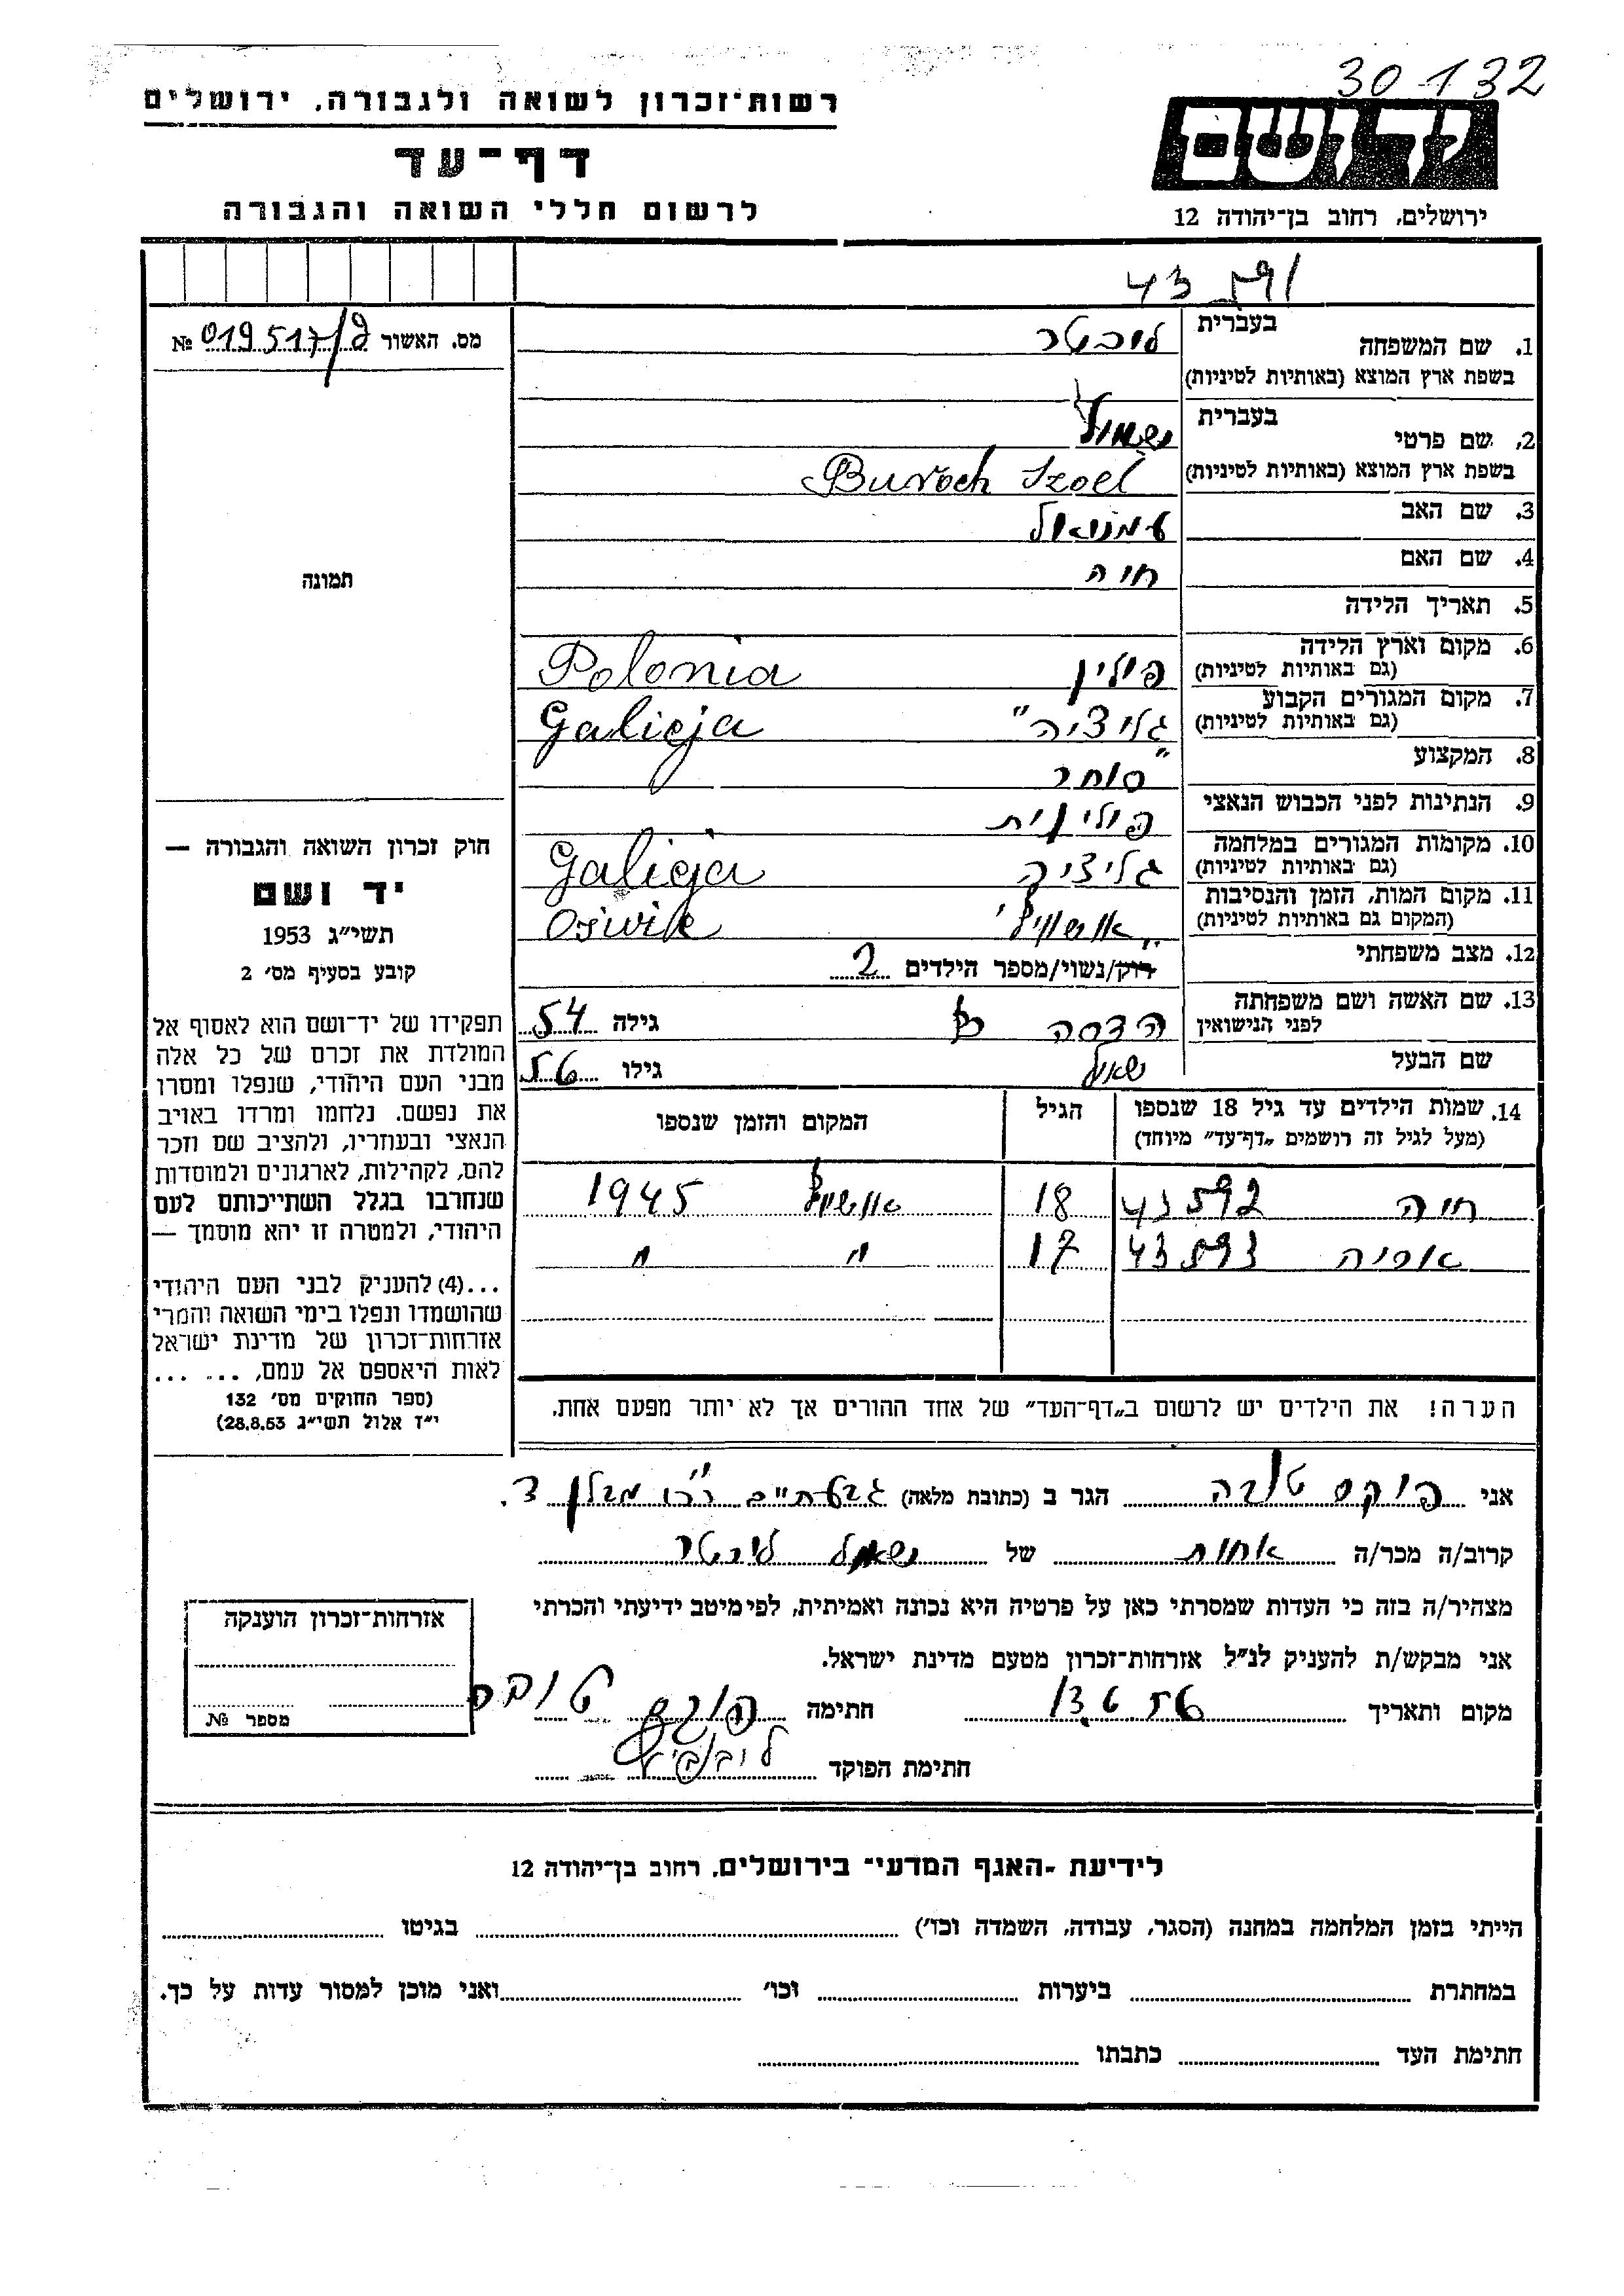 30132
רשות־זכרון לשואה ולגבורה, ירושלים
יד ושם
דף־עד
לרשום חללי השואה והגבורה
ירושלים, רחוב בן־יהודה 12
43591
מס. האשור № 019517/פ
1. שם המשפחה בעברית ליבטר
בשפת ארץ המוצא (באותיות לטיניות)
2. שם פרטי בעברית
בשפת ארץ המוצא (באותיות לטיניות) Buroch Izoel
3. שם האב עמנואל
4. שם האם חיה
5. תאריך הלידה
6. מקום וארץ הלידה (גם באותיות לטיניות) פולין Polonia
7. מקום המגורים הקבוע (גם באותיות לטיניות) גליציה Galicja
8. המקצוע סוחר
9. הנתינות לפני הכבוש הנאצי פולינית
10. מקומות המגורים במלחמה (גם באותיות לטיניות) גליציה Galicja
11. מקום המות, הזמן והנסיבות (המקום גם באותיות לטיניות) Oswik
12. מצב משפחתי רוק/נשוי/מספר הילדים 2
13. שם האשה ושם משפחתה לפני הנישואין הדסה גילה 54
שם הבעל שאול גילו 56
תמונה
חוק זכרון השואה והגבורה —
יד ושם
תשי״ג 1953
קובע בסעיף מס׳ 2
תפקידו של יד־ושם הוא לאסוף אל
המולדת את זכרם של כל אלה
מבני העם היהודי, שנפלו ומסרו
את נפשם. נלחמו ומרדו באויב
הנאצי ובעוזריו, ולהציב שם וזכר
להם, לקהילות, לארגונים ולמוסדות
שנחרבו בגלל השתייכותם לעם
היהודי, ולמטרה זו יהא מוסמך —
...(4) להעניק לבני העם היהודי
שהושמדו ונפלו בימי השואה והמרי
אזרחות־זכרון של מדינת ישראל
לאות היאספם אל עמם, ... ...
(ספר החוקים מס׳ 132
י״ד אלול תשי״ג 28.8.53)
14. שמות הילדים עד גיל 18 שנספו הגיל המקום והזמן שנספו
(מעל לגיל זה רושמים „דף־עד״ מיוחד)
חיה 43592 18 1945
אריה 43593 17 " "
הערה! את הילדים יש לרשום ב„דף־העד״ של אחד ההורים אך לא יותר מפעם אחת.
אני פוקס טובה הגר ב (כתובת מלאה)
קרוב/ה מכר/ה אחות של שאול ליבטר
מצהיר/ה בזה כי העדות שמסרתי כאן על פרטיה היא נכונה ואמיתית, לפי מיטב ידיעתי והכרתי
אני מבקש/ת להעניק לנ״ל אזרחות־זכרון מטעם מדינת ישראל.
מקום ותאריך חתימה פוקס טובה
חתימת הפוקד
אזרחות־זכרון הוענקה
מספר №
לידיעת ־האגף המדעי־ בירושלים, רחוב בן־יהודה 12
הייתי בזמן המלחמה במחנה (הסגר, עבודה, השמדה וכו׳) בגיטו
במחתרת ביערות וכו׳ ואני מוכן למסור עדות על כך.
חתימת העד כתבתו